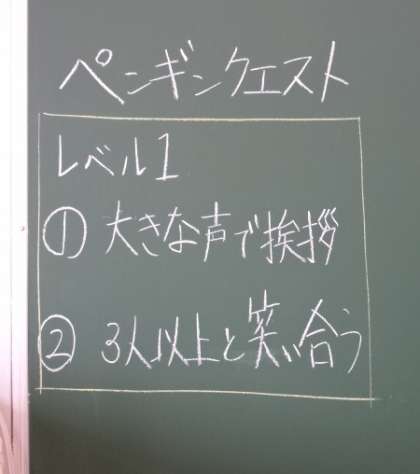 ペンギンクエスト
レベル1
① 大きな声で挨拶
② 3人以上と笑い合う